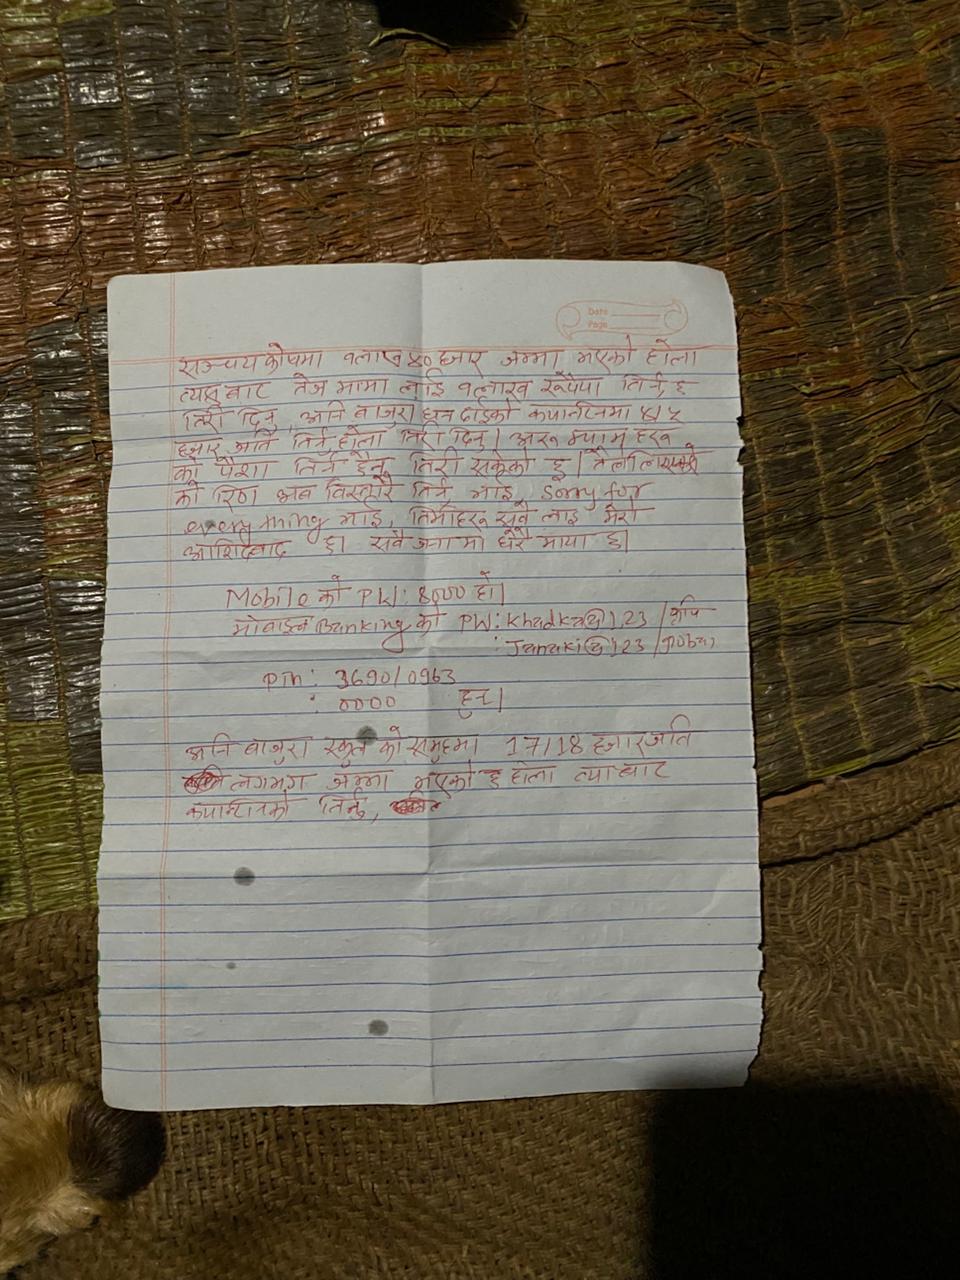 Date
Page
सञ्चय कोषमा १लाख ४० हजार जम्मा भएको होला
त्यस बाट तेज मामा लाई १लाख रुपैया तिर्नु छ
तिरी दिनु, अनि बाजुरा हरन दाईको क्यान्टिनमा ४/५
हजार जति तिर्नु होला तिरी दिनु। अरु म्याम हरु
को पैसा तिर्नु हैन, तिरी सकेको छु।
को रिण अब विस्तारै तिर्नु भाई, Sorry for
everything भाई, तिमीहरु सबै लाई मेरो
आशिर्वाद छ। सबै जना मा धेरै माया छ।
Mobile को PW: 8000 हो।
मोवाइल Banking को PW: Khadka@123 / कृषि
: Janaki@123 /
Pin: 3690/0963
: 0000 हुन्।
अनि बाजुरा स्कुल को समुहमा 17/18 हजार जति
लगभग जम्मा भएको छ होला त्या बाट
क्यान्टिनको तिर्नु,